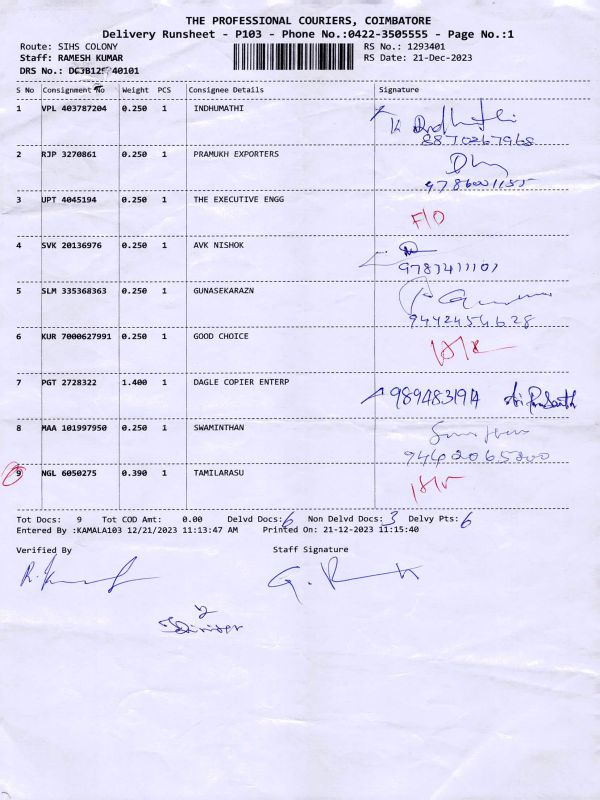 THE PROFESSIONAL COURIERS, COIMBATORE
Delivery Runsheet - P103 - Phone No.:0422-3505555 - Page No.:1
Route: SIHS COLONY RS No.: 1293401
Staff: RAMESH KUMAR RS Date: 21-Dec-2023
DRS No.:
S No Consignment No Weight PCS Consignee Details Signature
1 VPL 403787204 0.250 1 INDHUMATHI
8870267968
2 RJP 3270861 0.250 1 PRAMUKH EXPORTERS
3 UPT 4045194 0.250 1 THE EXECUTIVE ENGG F/O
4 SVK 20136976 0.250 1 AVK NISHOK
5 SLM 335368363 0.250 1 GUNASEKARAZN
9442454628
6 KUR 7000627991 0.250 1 GOOD CHOICE
7 PGT 2728322 1.400 1 DAGLE COPIER ENTERP
8 MAA 101997950 0.250 1 SWAMINTHAN
9 NGL 6050275 0.390 1 TAMILARASU
Tot Docs: 9 Tot COD Amt: 0.00 Delvd Docs: 6 Non Delvd Docs: 3 Delvy Pts: 6
Entered By :KAMALA103 12/21/2023 11:13:47 AM Printed On: 21-12-2023 11:15:40
Verified By Staff Signature